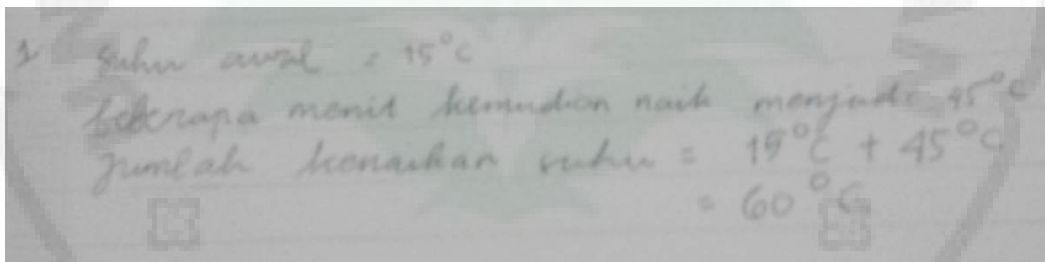 1 Suhu awal = 15°C
beberapa menit kemudian naik menjadi 45°C
Jumlah kenaikan suhu = 15°C + 45°C
= 60°C